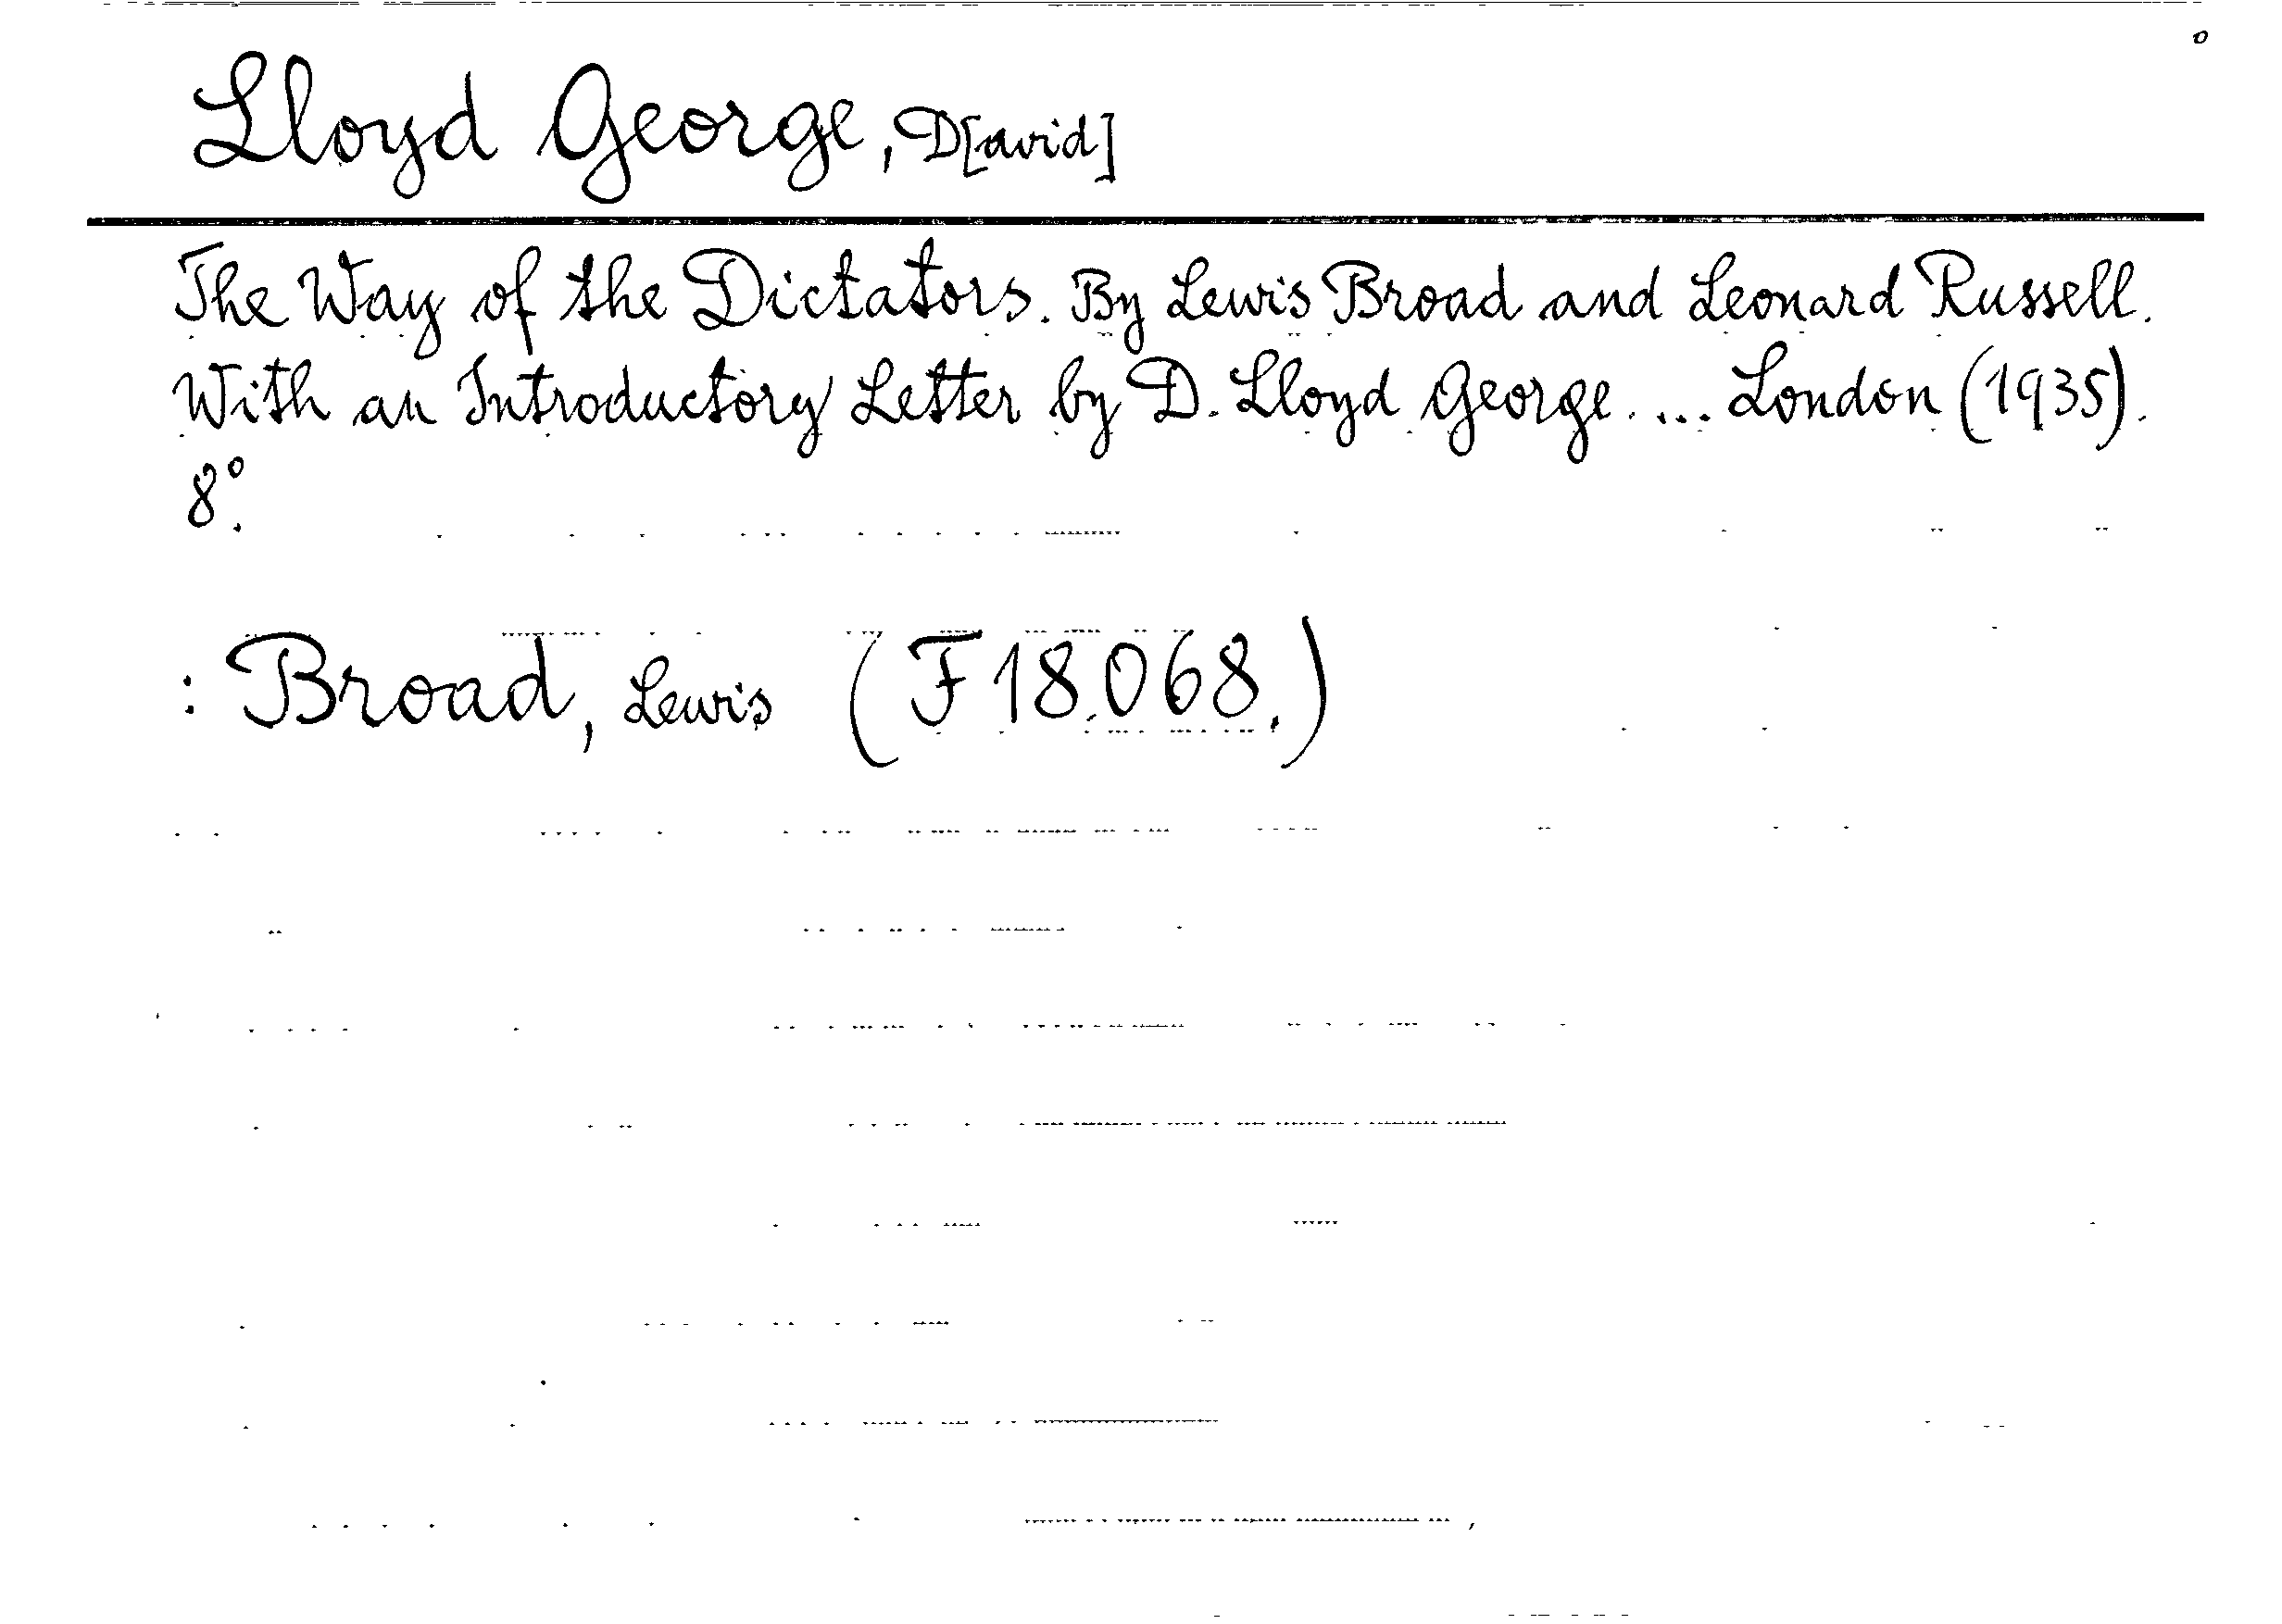 Lloyd George, D[avid]
The Way of the Dictators. By Lewis Broad and Leonard Russell.
With an Introductory Letter by D. Lloyd George. ... London (1935).
8°.
: Broad, Lewis (F 18.068.)